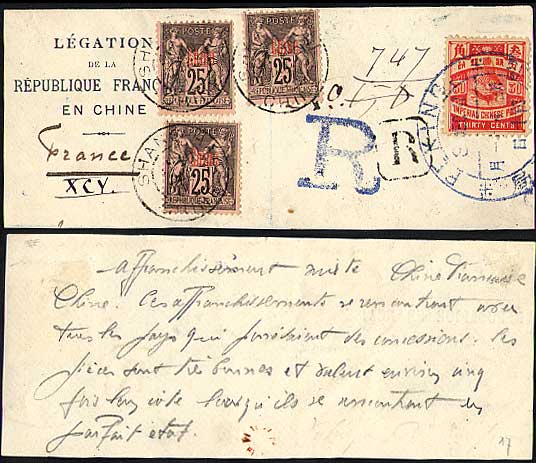 LÉGATION
DE LA
RÉPUBLIQUE FRANÇ
EN CHINE
France
XCY.
POSTE
CHINE
25
RÉPUBLIQUE FRANÇAISE
POSTE
CHINE
25
RÉPUBLIQUE FRANÇAISE
POSTE
CHINE
25
RÉPUBLIQUE FRANÇAISE
SHANG
747
R
R
角 叁
IMPERIAL CHINESE POST
THIRTY CENTS
PEKING
affranchissement mixte Chine française
Chine. Ces affranchissements se rencontrent avec
tous les pays qui possédaient des concessions. Les
pièces sont très bonnes et valent environ cinq
fois leur cote lorsqu'ils se rencontrent en
parfait état.
17